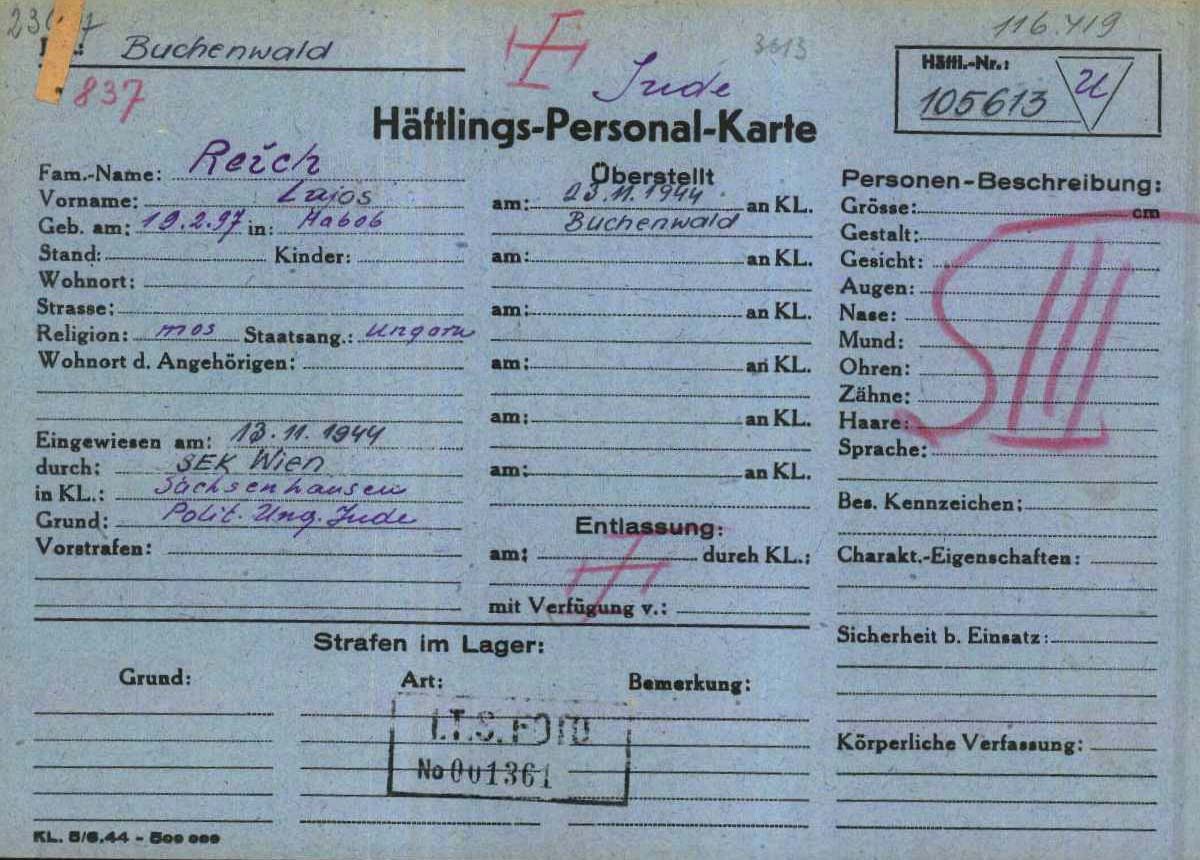 116.419
KL.: Buchenwald
3613
837
Jude
Häftl.-Nr.:
105613
U
Häftlings-Personal-Karte
Fam.-Name: Reich
Vorname: Lajos
Geb. am: 19.2.97 in: Habob
Stand: Kinder:
Wohnort:
Strasse:
Religion: mos Staatsang.: Ungarn
Wohnort d. Angehörigen:
Eingewiesen am: 13.11.1944
durch: SEK Wien
in KL.: Sachsenhausen
Grund: Polit. Ung. Jude
Vorstrafen:
Überstellt
am: 23.11.1944 an KL.
Buchenwald
am: an KL.
am: an KL.
am: an KL.
am: an KL.
am: an KL.
Entlassung:
am: durch KL.:
mit Verfügung v.:
Personen-Beschreibung:
Grösse: cm
Gestalt:
Gesicht:
Augen:
Nase:
Mund:
Ohren:
Zähne:
Haare:
Sprache:
SIII
Bes. Kennzeichen:
Charakt.-Eigenschaften:
Sicherheit b. Einsatz:
Körperliche Verfassung:
Strafen im Lager:
Grund: Art: Bemerkung:
I.T.S. FOTO
No 001361
KL. 5/6.44 - 500 000